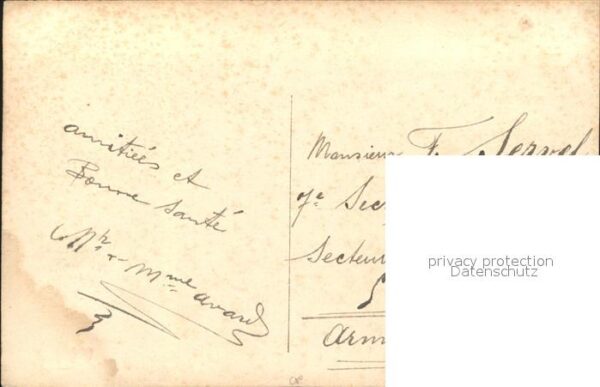 amitiés et
Bonne santé
Mr & Mme Avard
Monsieur F. Servel
7e Sec
Secteur
5
Arm
privacy protection
Datenschutz